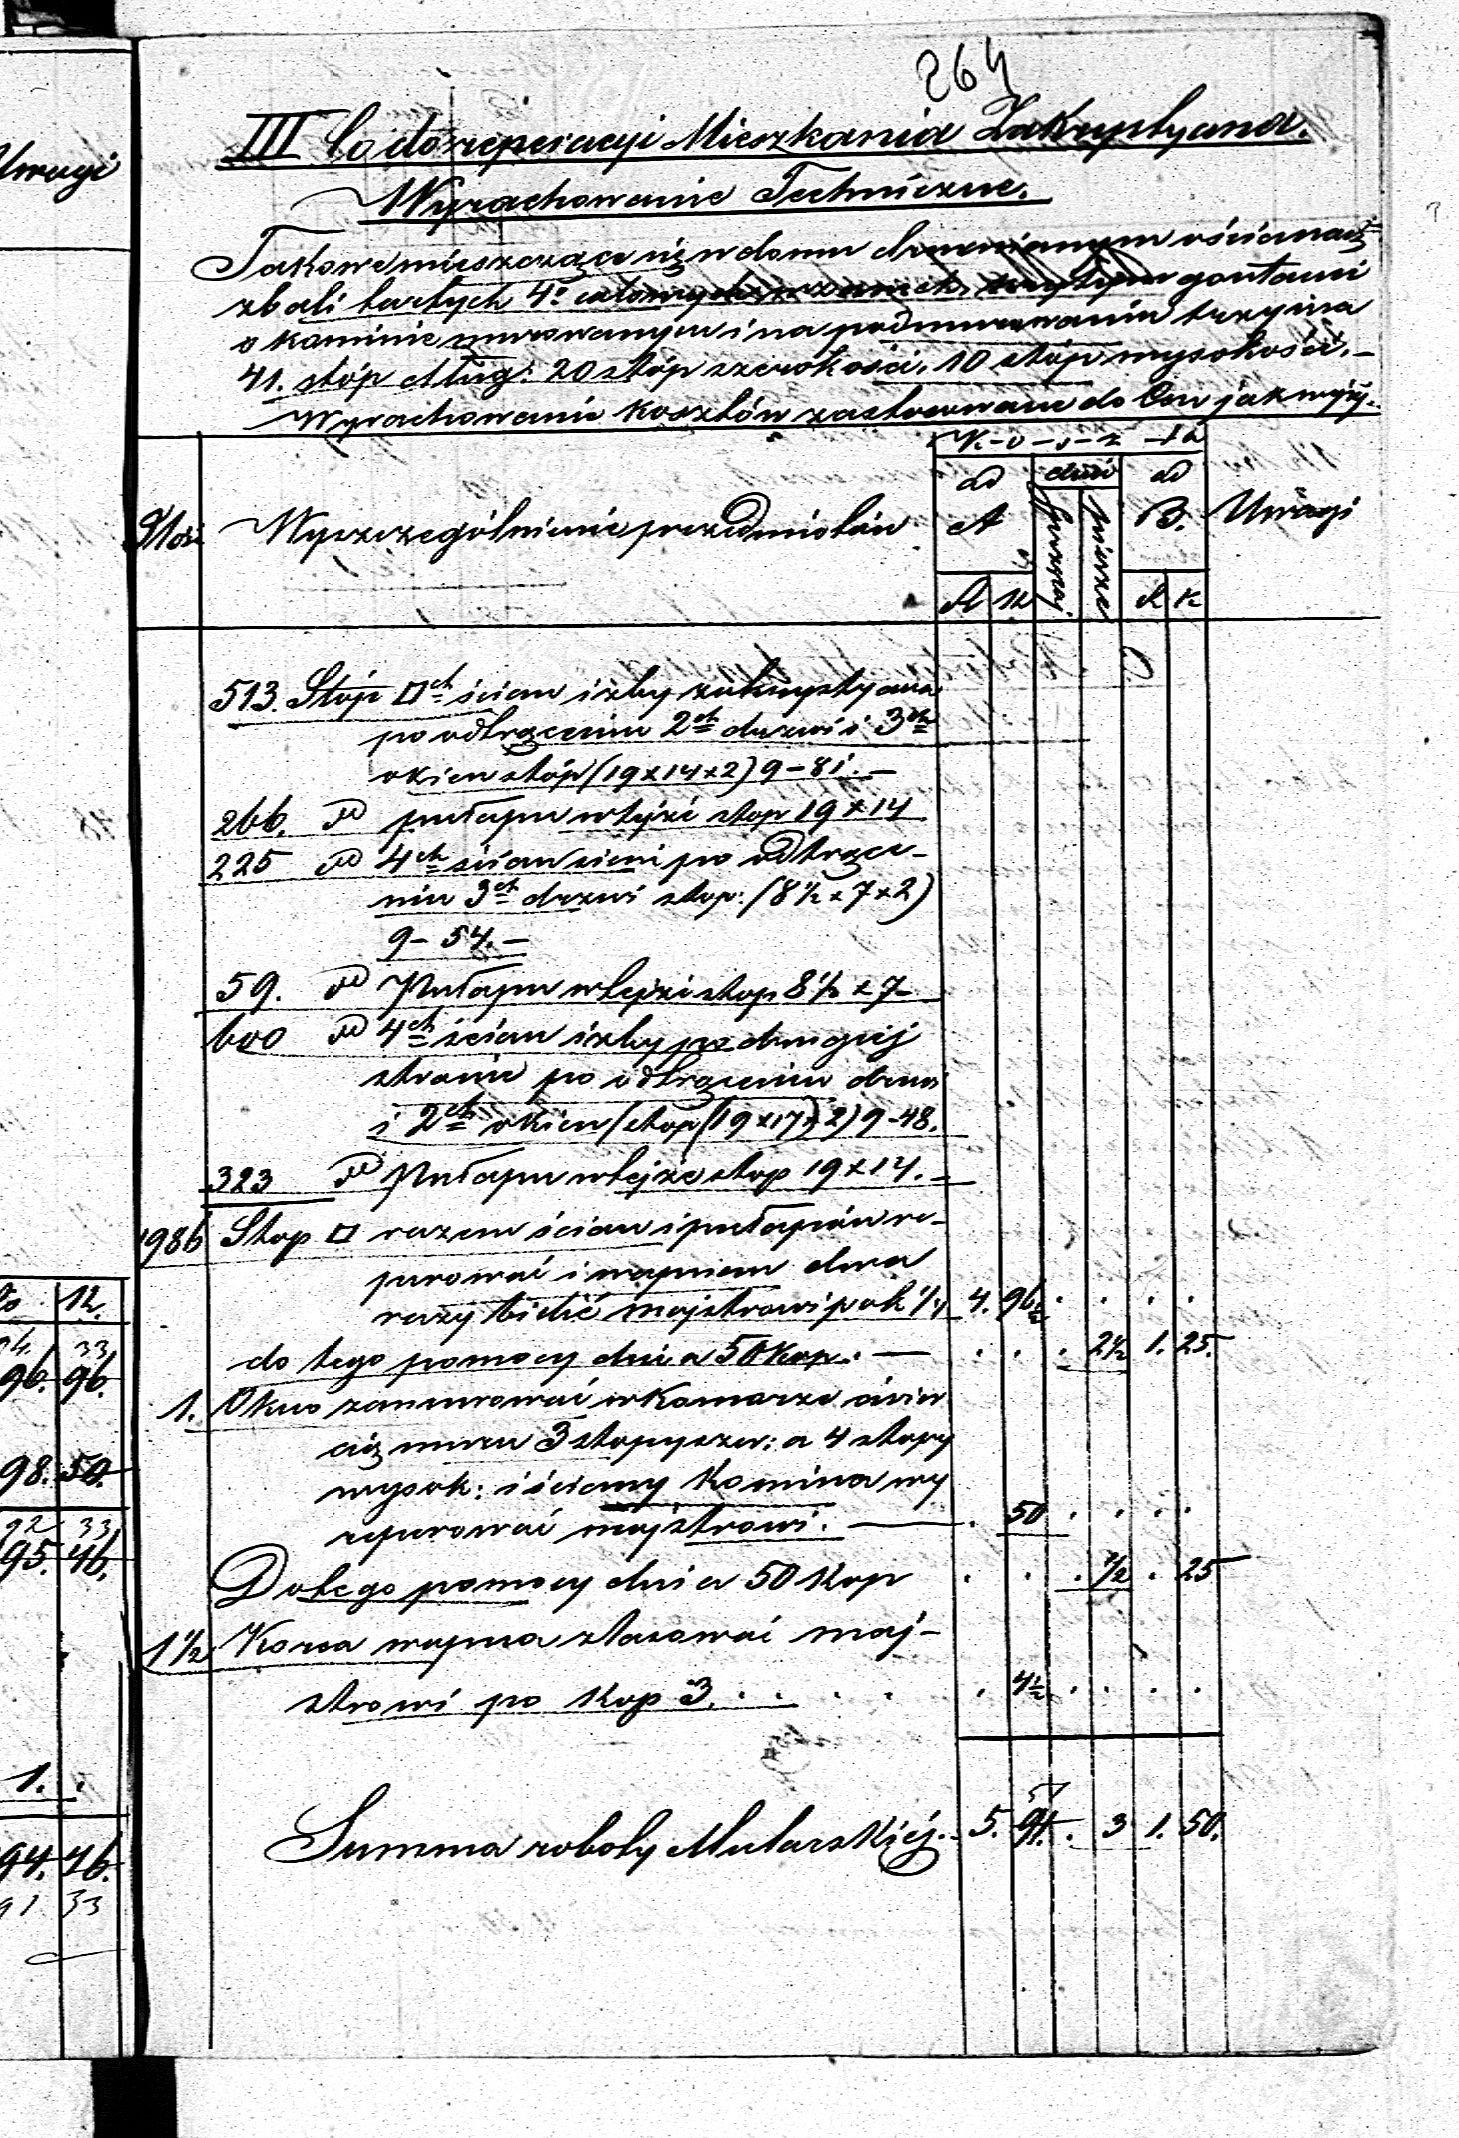 Uwagi
264
III Co do reperacyi Mieszkania Zakrystyana.
Wyrachowanie Techniczne.
Takowe mieszczące się w domu drewnianym o ścianach
z bali tartych 4. calowych, krytym gontami
o kominie murowanym i na podmurowaniu trzyma
41. stóp dług: 20 stóp szerokości, 10 stóp wysokości. –
Wyrachowanie kosztów zastosowane do Cen jak wyżej.
K – o – s – z – t a
Ilość Wyszczególnienie przedmiotów ad A dni ad B. Uwagi
R k R k
513. Stóp □ ch ścian izby zakrystyana
po odtrąceniu 2ch drzwi i 3ch
okien stóp (19 x 14 x 2) 9 – 81. –
266. d pułapu w tejże stop 19 x 14
225 d 4ch ścian sieni po odtrące-
niu 3ch drzwi stop: (8 1/2 x 7 x 2)
9 – 54. –
59. d Pułapu w tejże stop 8 1/2 x 7 –
600 d 4ch ścian izby po drugiej
stronie po odtrąceniu drzwi
i 2ch okien (stop (19 x 17 x 2) 9 – 48.
323 d Pułapu w tejże stop 19 x 17. –
1986 Stop □ razem ścian i pułapów re-
parować i wapnem dwa
razy bielić majstrowi po k 1/4 4. 96 1/2 . . . .
do tego pomocy dni a 50 kop. — . . . 2 1/2 1. 25.
1. Okno zamurować w Komorze
muru 3 stopy szer: a 4 stopy
wysok: i ściany Komina wy
reperować majstrowi. — . 50 . . . .
Do tego pomocy dni a 50 Kop . . . 1/2 . 25
1 1/2 Korca wapna zlasować maj-
strowi po Kop 3. . . . . . 4 1/2 . . . .
Summa roboty Mularskiej. – 5. 51 . 3 1. 50.
12.
33
96. 96.
98. 50.
92 33
95. 46.
1. .
94. 46.
91 33